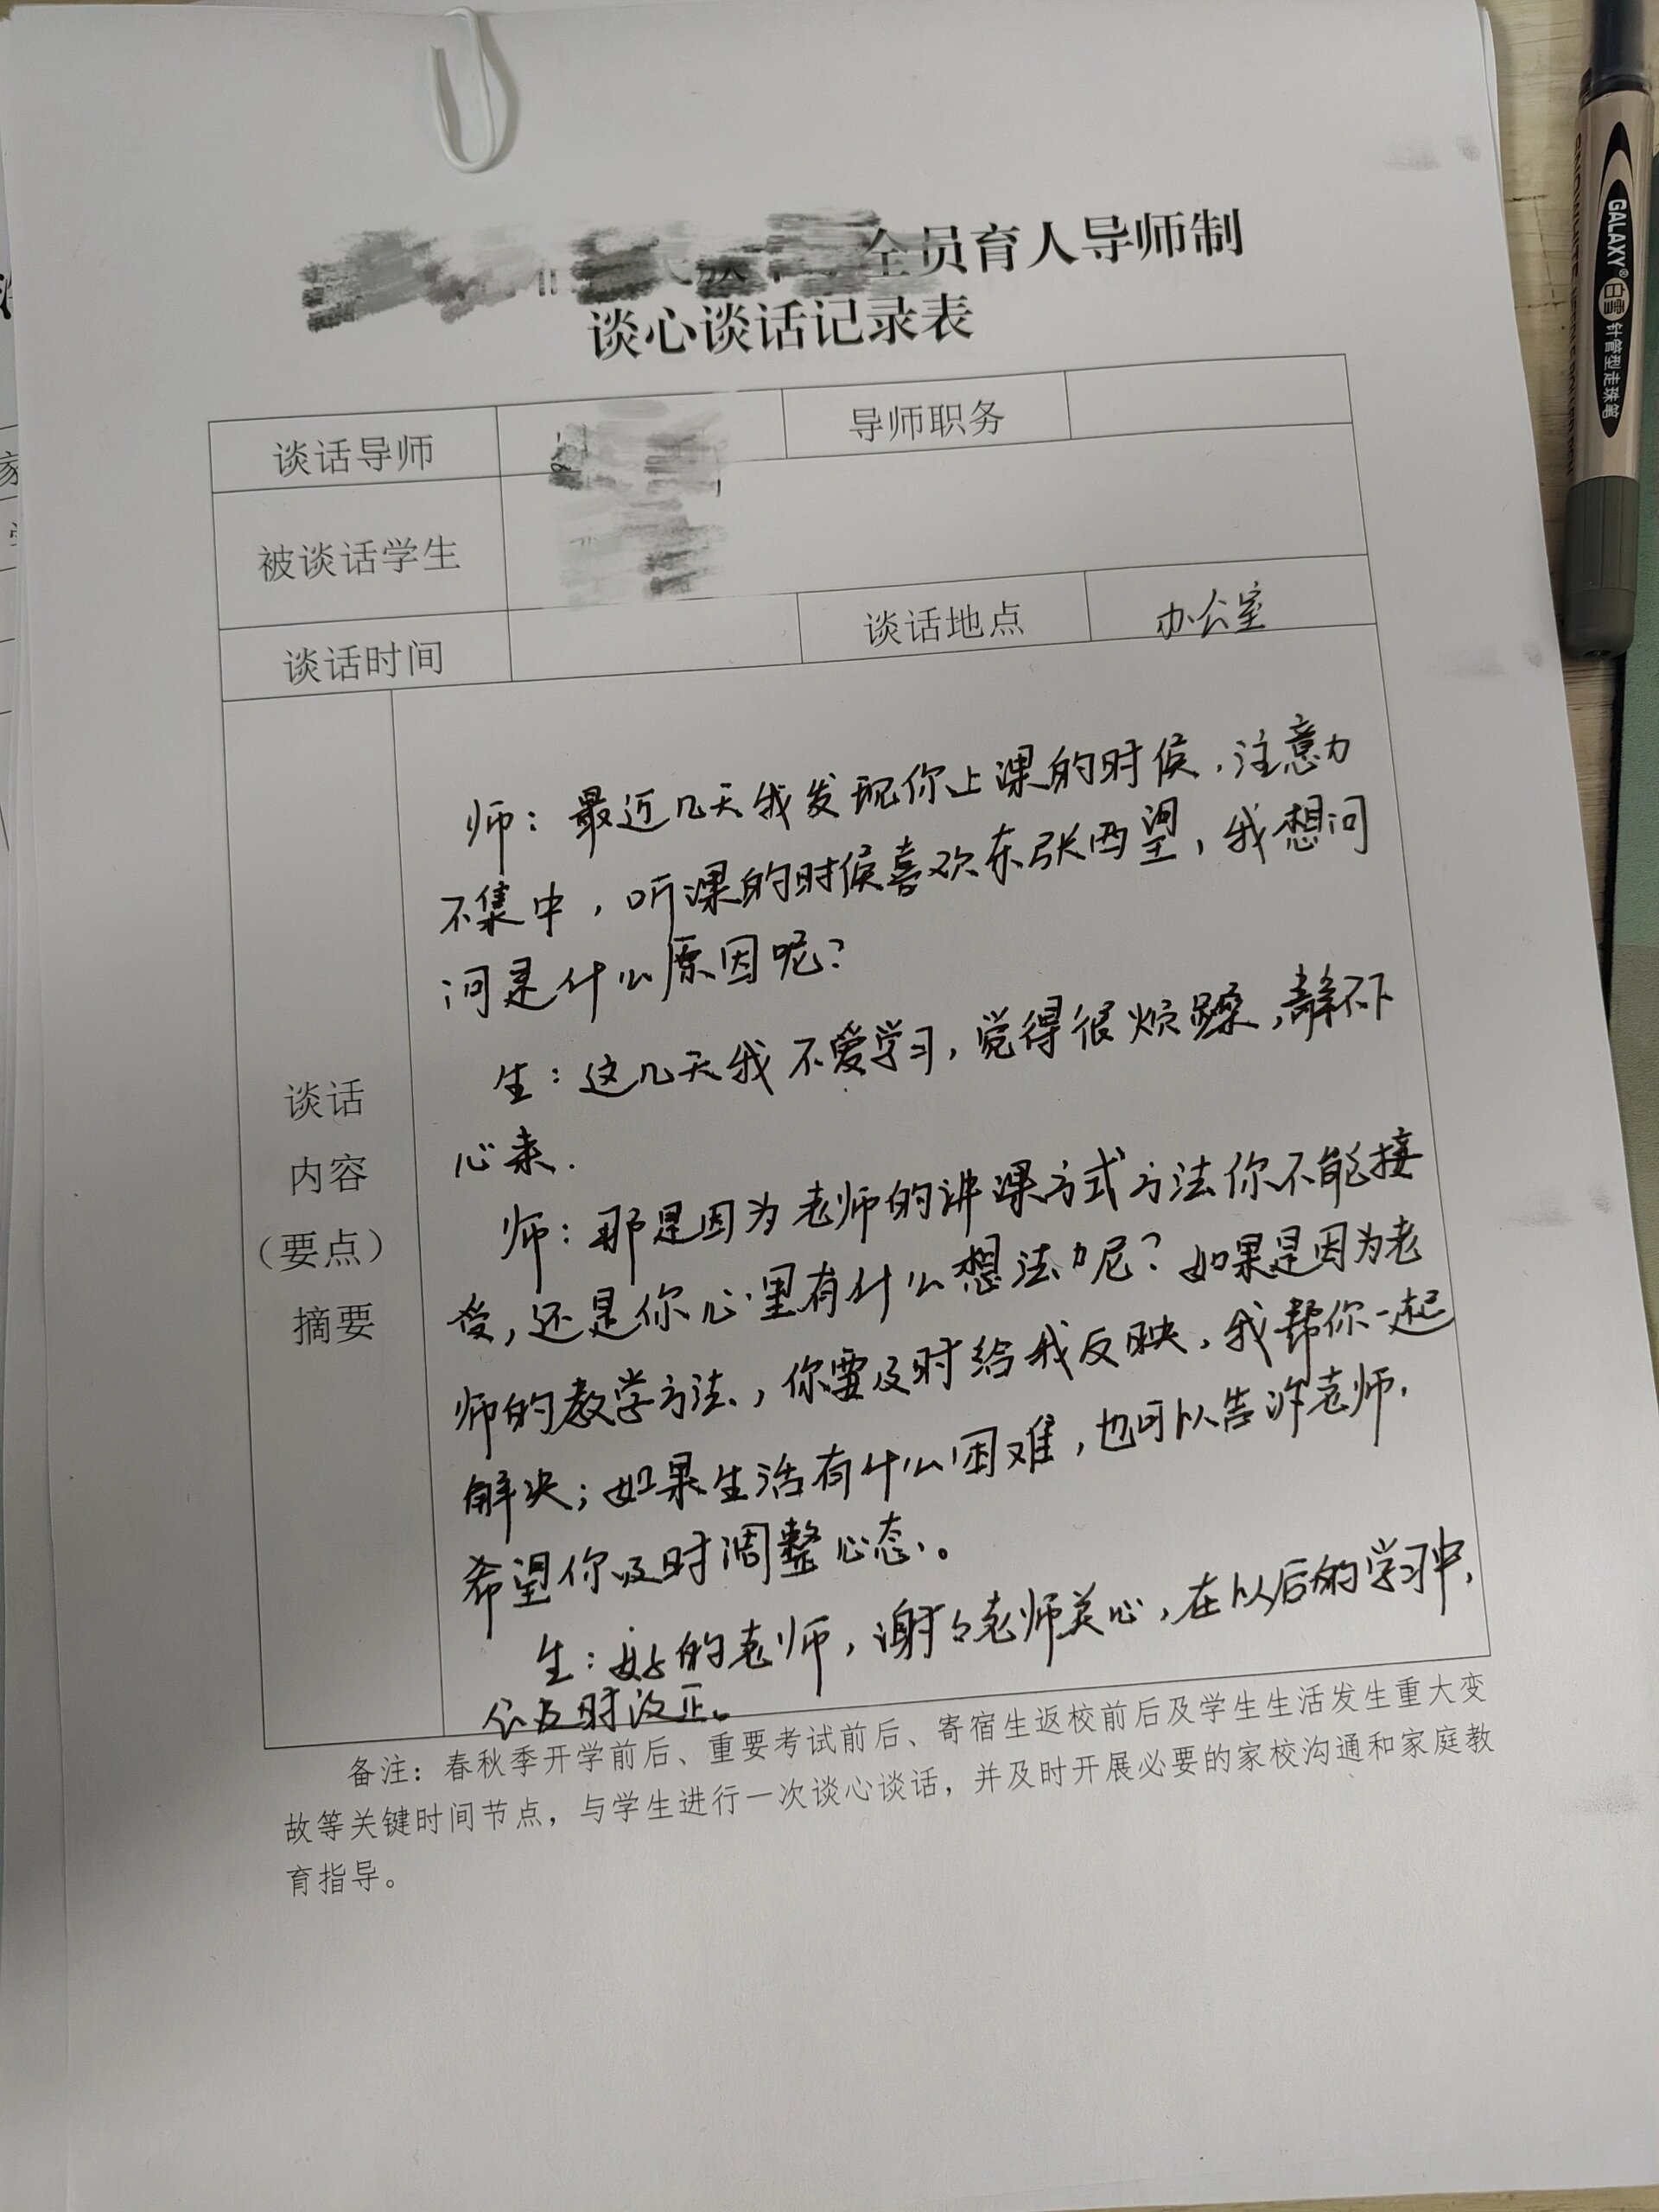 全员育人导师制
谈心谈话记录表
谈话导师
导师职务
被谈话学生
谈话时间
谈话地点
办公室
谈话
内容
（要点）
摘要
师：最近几天我发现你上课的时候，注意力
不集中，听课的时候喜欢东张西望，我想问
问是什么原因呢？
生：这几天我不爱学习，觉得很烦躁，静不下
心来.
师：那是因为老师的讲课方式方法你不能接
受，还是你心里有什么想法呢？如果是因为老
师的教学方法，你要及时给我反映，我帮你一起
解决；如果生活有什么困难，也可以告诉老师，
希望你及时调整心态。
生：好的老师，谢々老师关心，在以后的学习中，
会及时改正。
备注：春秋季开学前后、重要考试前后、寄宿生返校前后及学生生活发生重大变
故等关键时间节点，与学生进行一次谈心谈话，并及时开展必要的家校沟通和家庭教
育指导。
GALAXY®
白雪
针管型走珠笔